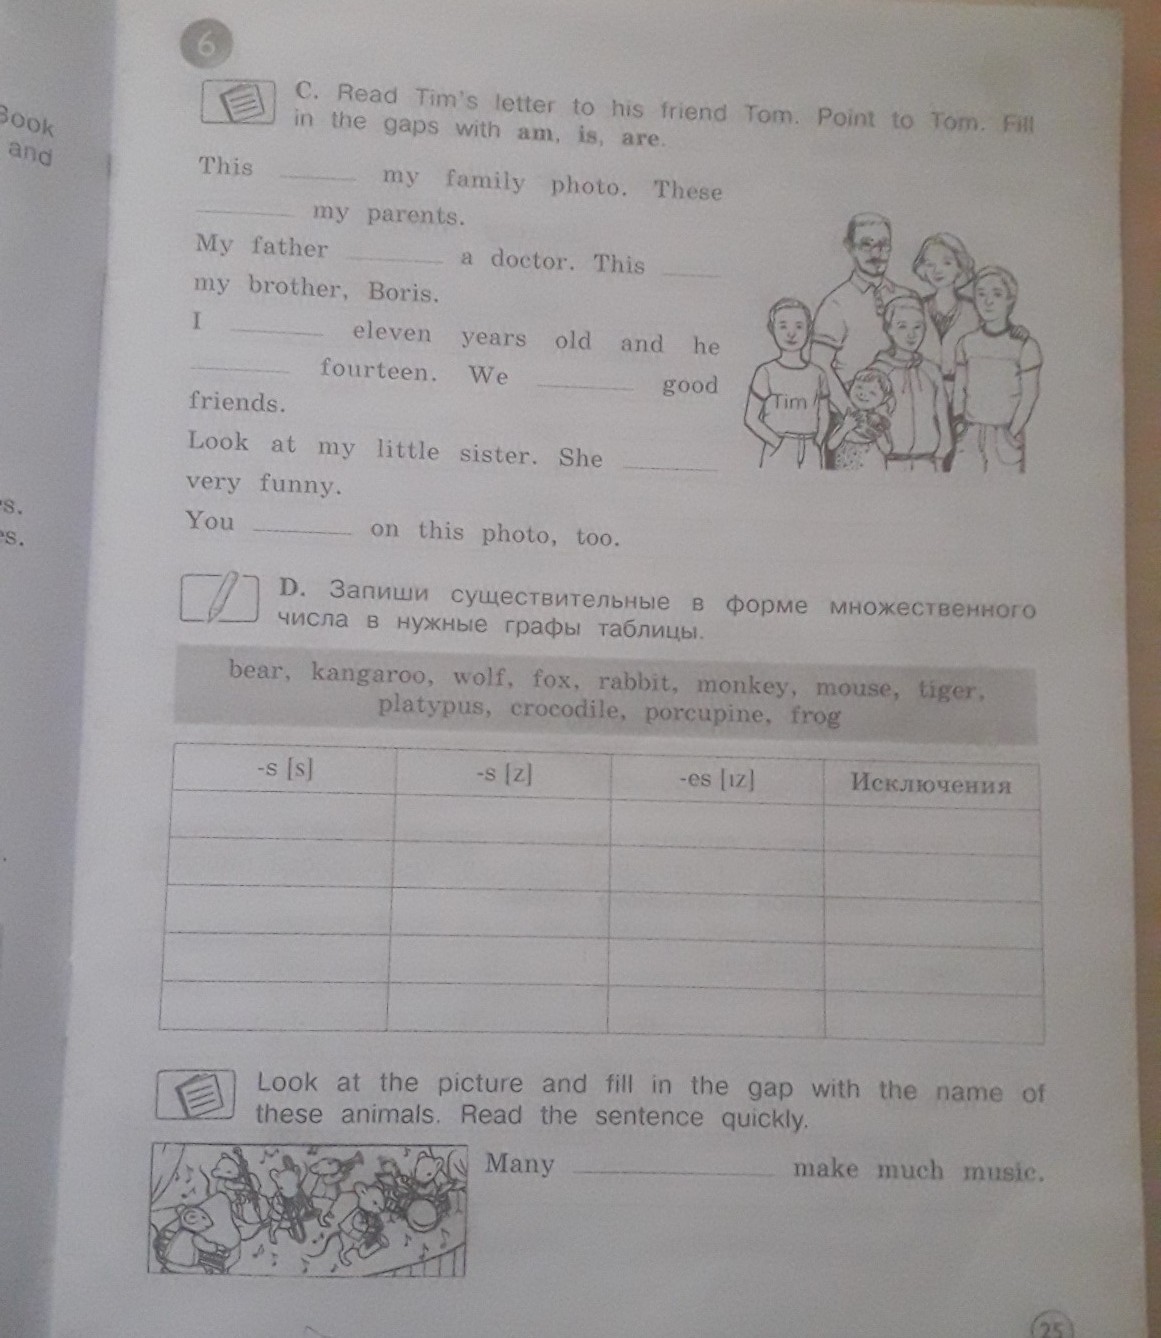 6
Book
and
C. Read Tim's letter to his friend Tom. Point to Tom. Fill
in the gaps with am, is, are.
This ________ my family photo. These
________ my parents.
My father ________ a doctor. This ________
my brother, Boris.
I ________ eleven years old and he
________ fourteen. We ________ good
friends.
Look at my little sister. She ________
very funny.
You ________ on this photo, too.
Tim
D. Запиши существительные в форме множественного
числа в нужные графы таблицы.
bear, kangaroo, wolf, fox, rabbit, monkey, mouse, tiger,
platypus, crocodile, porcupine, frog
-s [s] -s [z] -es [ɪz] Исключения
Look at the picture and fill in the gap with the name of
these animals. Read the sentence quickly.
Many ________ make much music.
25